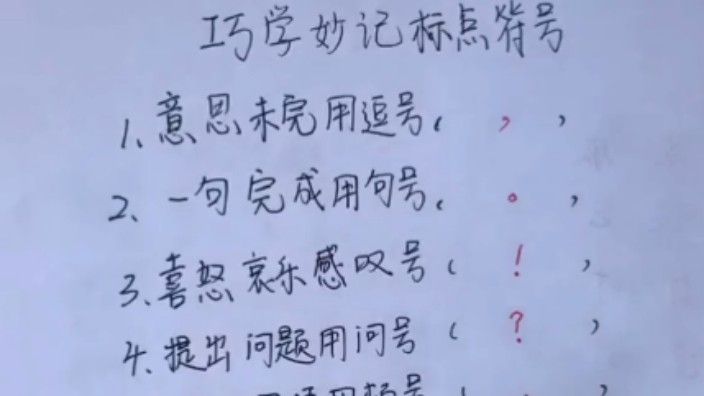 巧学妙记标点符号
1、意思未完用逗号( , )
2、一句完成用句号( 。 )
3、喜怒哀乐感叹号( ! )
4、提出问题用问号( ? )